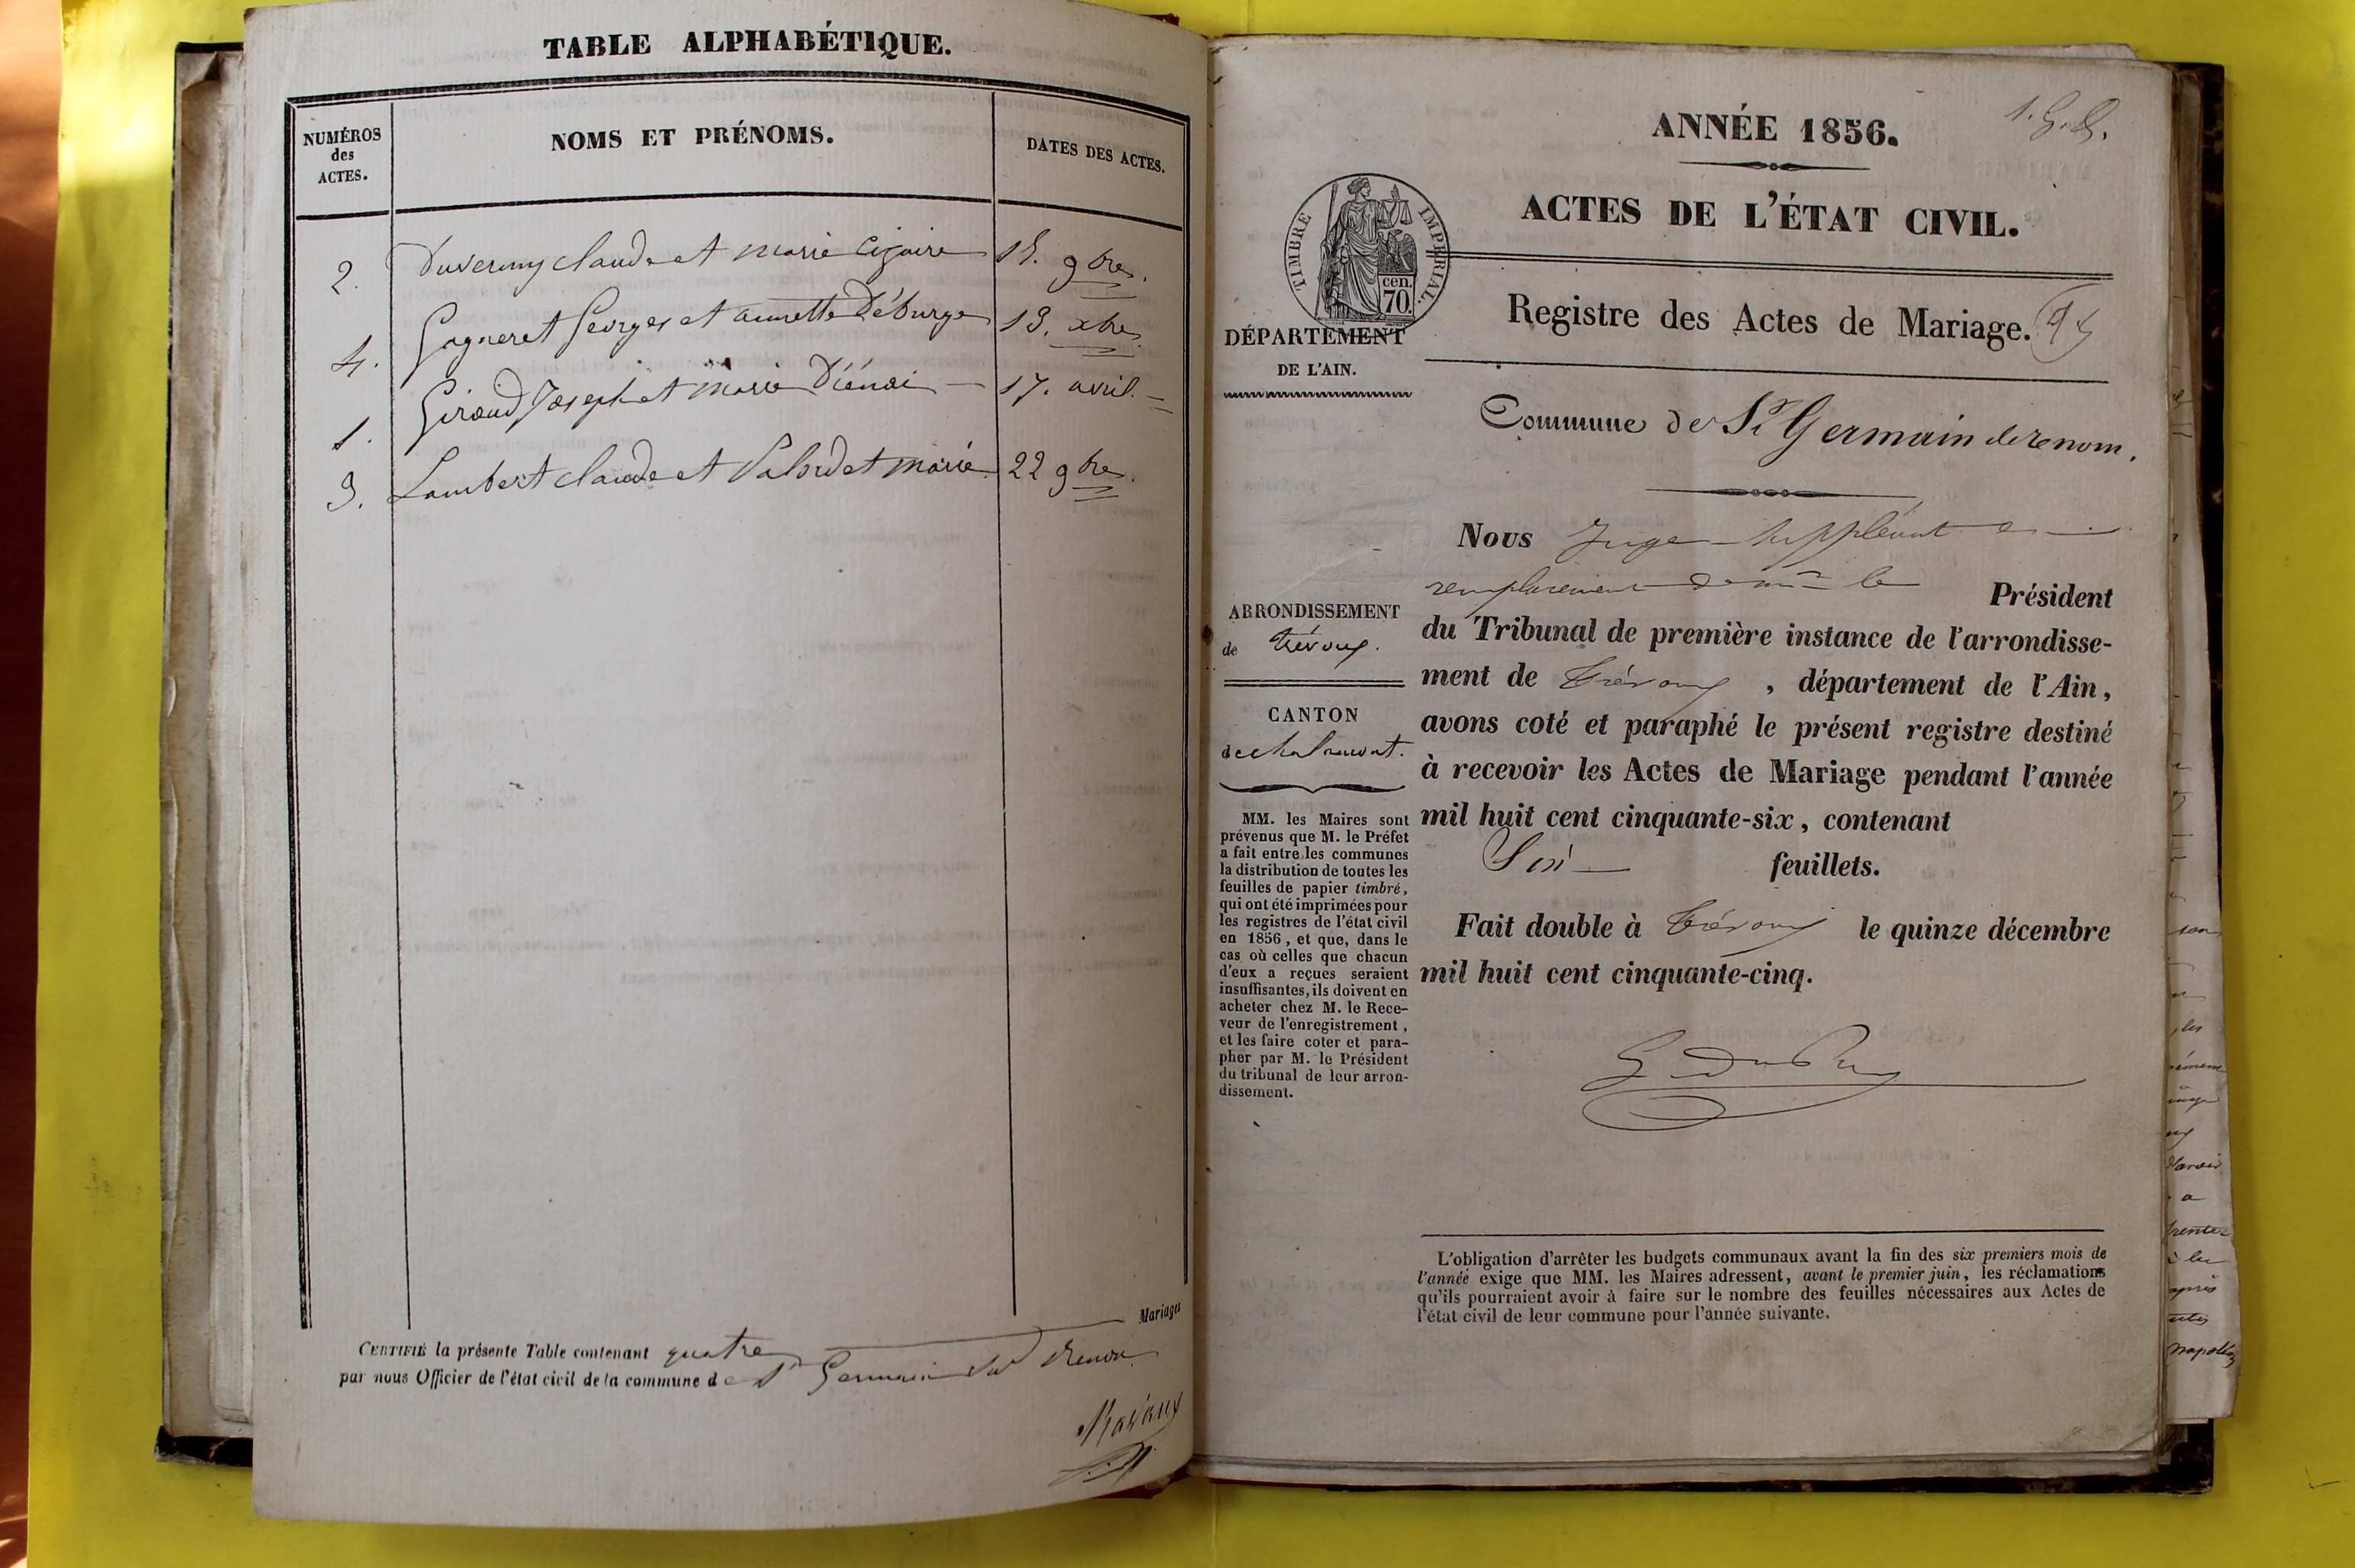 TABLE ALPHABÉTIQUE.
NUMÉROS
des
ACTES.
NOMS ET PRÉNOMS.
DATES DES ACTES.
2. Duverny claude et marie 15. 9bre.
4. Gagneret Georges et annette Déburge 13. xbre.
1. Giraud Joseph et marie 17. avril.
3. Lambert claude et marie 22 9bre.
Mariages
CERTIFIÉ la présente Table contenant quatre
par nous Officier de l'état civil de la commune de St Germain sur Renon
1. G. D.
ANNÉE 1856.
ACTES DE L'ÉTAT CIVIL.
TIMBRE IMPÉRIAL.
cen.
70.
Registre des Actes de Mariage.
DÉPARTEMENT
DE L'AIN.
Commune de St Germain de renom.
Nous Juge suppléant en
remplacement de mr le Président
du Tribunal de première instance de l'arrondisse-
ment de Trévoux, département de l'Ain,
avons coté et paraphé le présent registre destiné
à recevoir les Actes de Mariage pendant l'année
mil huit cent cinquante-six, contenant
Six feuillets.
Fait double à Trévoux le quinze décembre
mil huit cent cinquante-cinq.
G Dubuy
ARRONDISSEMENT
de trévoux.
CANTON
de chalamont.
MM. les Maires sont
prévenus que M. le Préfet
a fait entre les communes
la distribution de toutes les
feuilles de papier timbré,
qui ont été imprimées pour
les registres de l'état civil
en 1856, et que, dans le
cas où celles que chacun
d'eux a reçues seraient
insuffisantes, ils doivent en
acheter chez M. le Rece-
veur de l'enregistrement,
et les faire coter et para-
pher par M. le Président
du tribunal de leur arron-
dissement.
L'obligation d'arrêter les budgets communaux avant la fin des six premiers mois de
l'année exige que MM. les Maires adressent, avant le premier juin, les réclamations
qu'ils pourraient avoir à faire sur le nombre des feuilles nécessaires aux Actes de
l'état civil de leur commune pour l'année suivante.